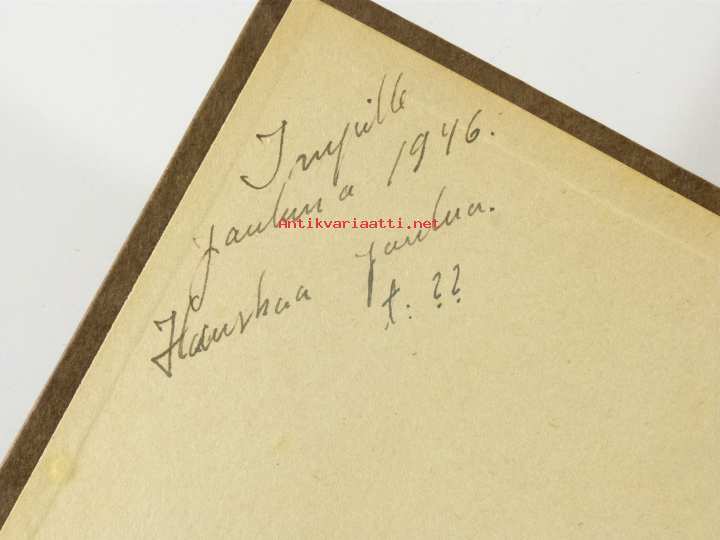 Impille
jouluna 1946.
Antikvariaatti.net
Hauskaa joulua.
t: ??